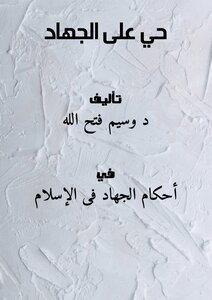 حي على الجهاد
تأليف
د وسيم فتح الله
في
أحكام الجهاد فى الإسلام